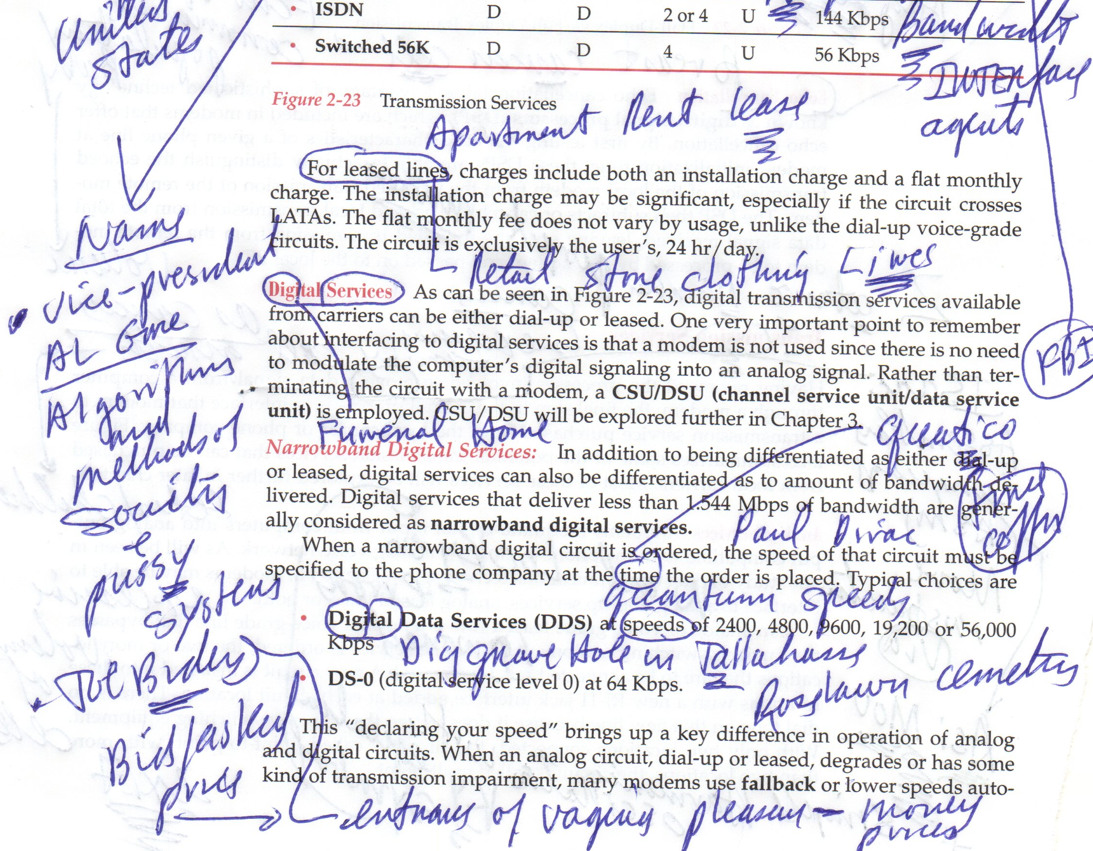 United
States
ISDN D D 2 or 4 U 144 Kbps
Switched 56K D D 4 U 56 Kbps
INTERface
agents
Figure 2-23 Transmission Services
Apartment Rent lease
For leased lines, charges include both an installation charge and a flat monthly
charge. The installation charge may be significant, especially if the circuit crosses
LATAs. The flat monthly fee does not vary by usage, unlike the dial-up voice-grade
circuits. The circuit is exclusively the user's, 24 hr/day.
retail store clothing Lines
Names
vice-president
AL Gore
Algorithms
and
methods of
society
pussy
systems
Joe Biden
Bid
price
Digital Services As can be seen in Figure 2-23, digital transmission services available
from carriers can be either dial-up or leased. One very important point to remember
about interfacing to digital services is that a modem is not used since there is no need
to modulate the computer's digital signaling into an analog signal. Rather than ter-
minating the circuit with a modem, a CSU/DSU (channel service unit/data service
unit) is employed. CSU/DSU will be explored further in Chapter 3.
Funeral Home
Quantico
Narrowband Digital Services: In addition to being differentiated as either dial-up
or leased, digital services can also be differentiated as to amount of bandwidth de-
livered. Digital services that deliver less than 1.544 Mbps of bandwidth are gener-
ally considered as narrowband digital services.
Paul Dirac
When a narrowband digital circuit is ordered, the speed of that circuit must be
specified to the phone company at the time the order is placed. Typical choices are
quantum speeds
• Digital Data Services (DDS) at speeds of 2400, 4800, 9600, 19,200 or 56,000
Kbps
Dig grave Hole in Tallahasse
• DS-0 (digital service level 0) at 64 Kbps.
Rosslawn cemetry
This "declaring your speed" brings up a key difference in operation of analog
and digital circuits. When an analog circuit, dial-up or leased, degrades or has some
kind of transmission impairment, many modems use fallback or lower speeds auto-
of vagina pleasure - money
prices